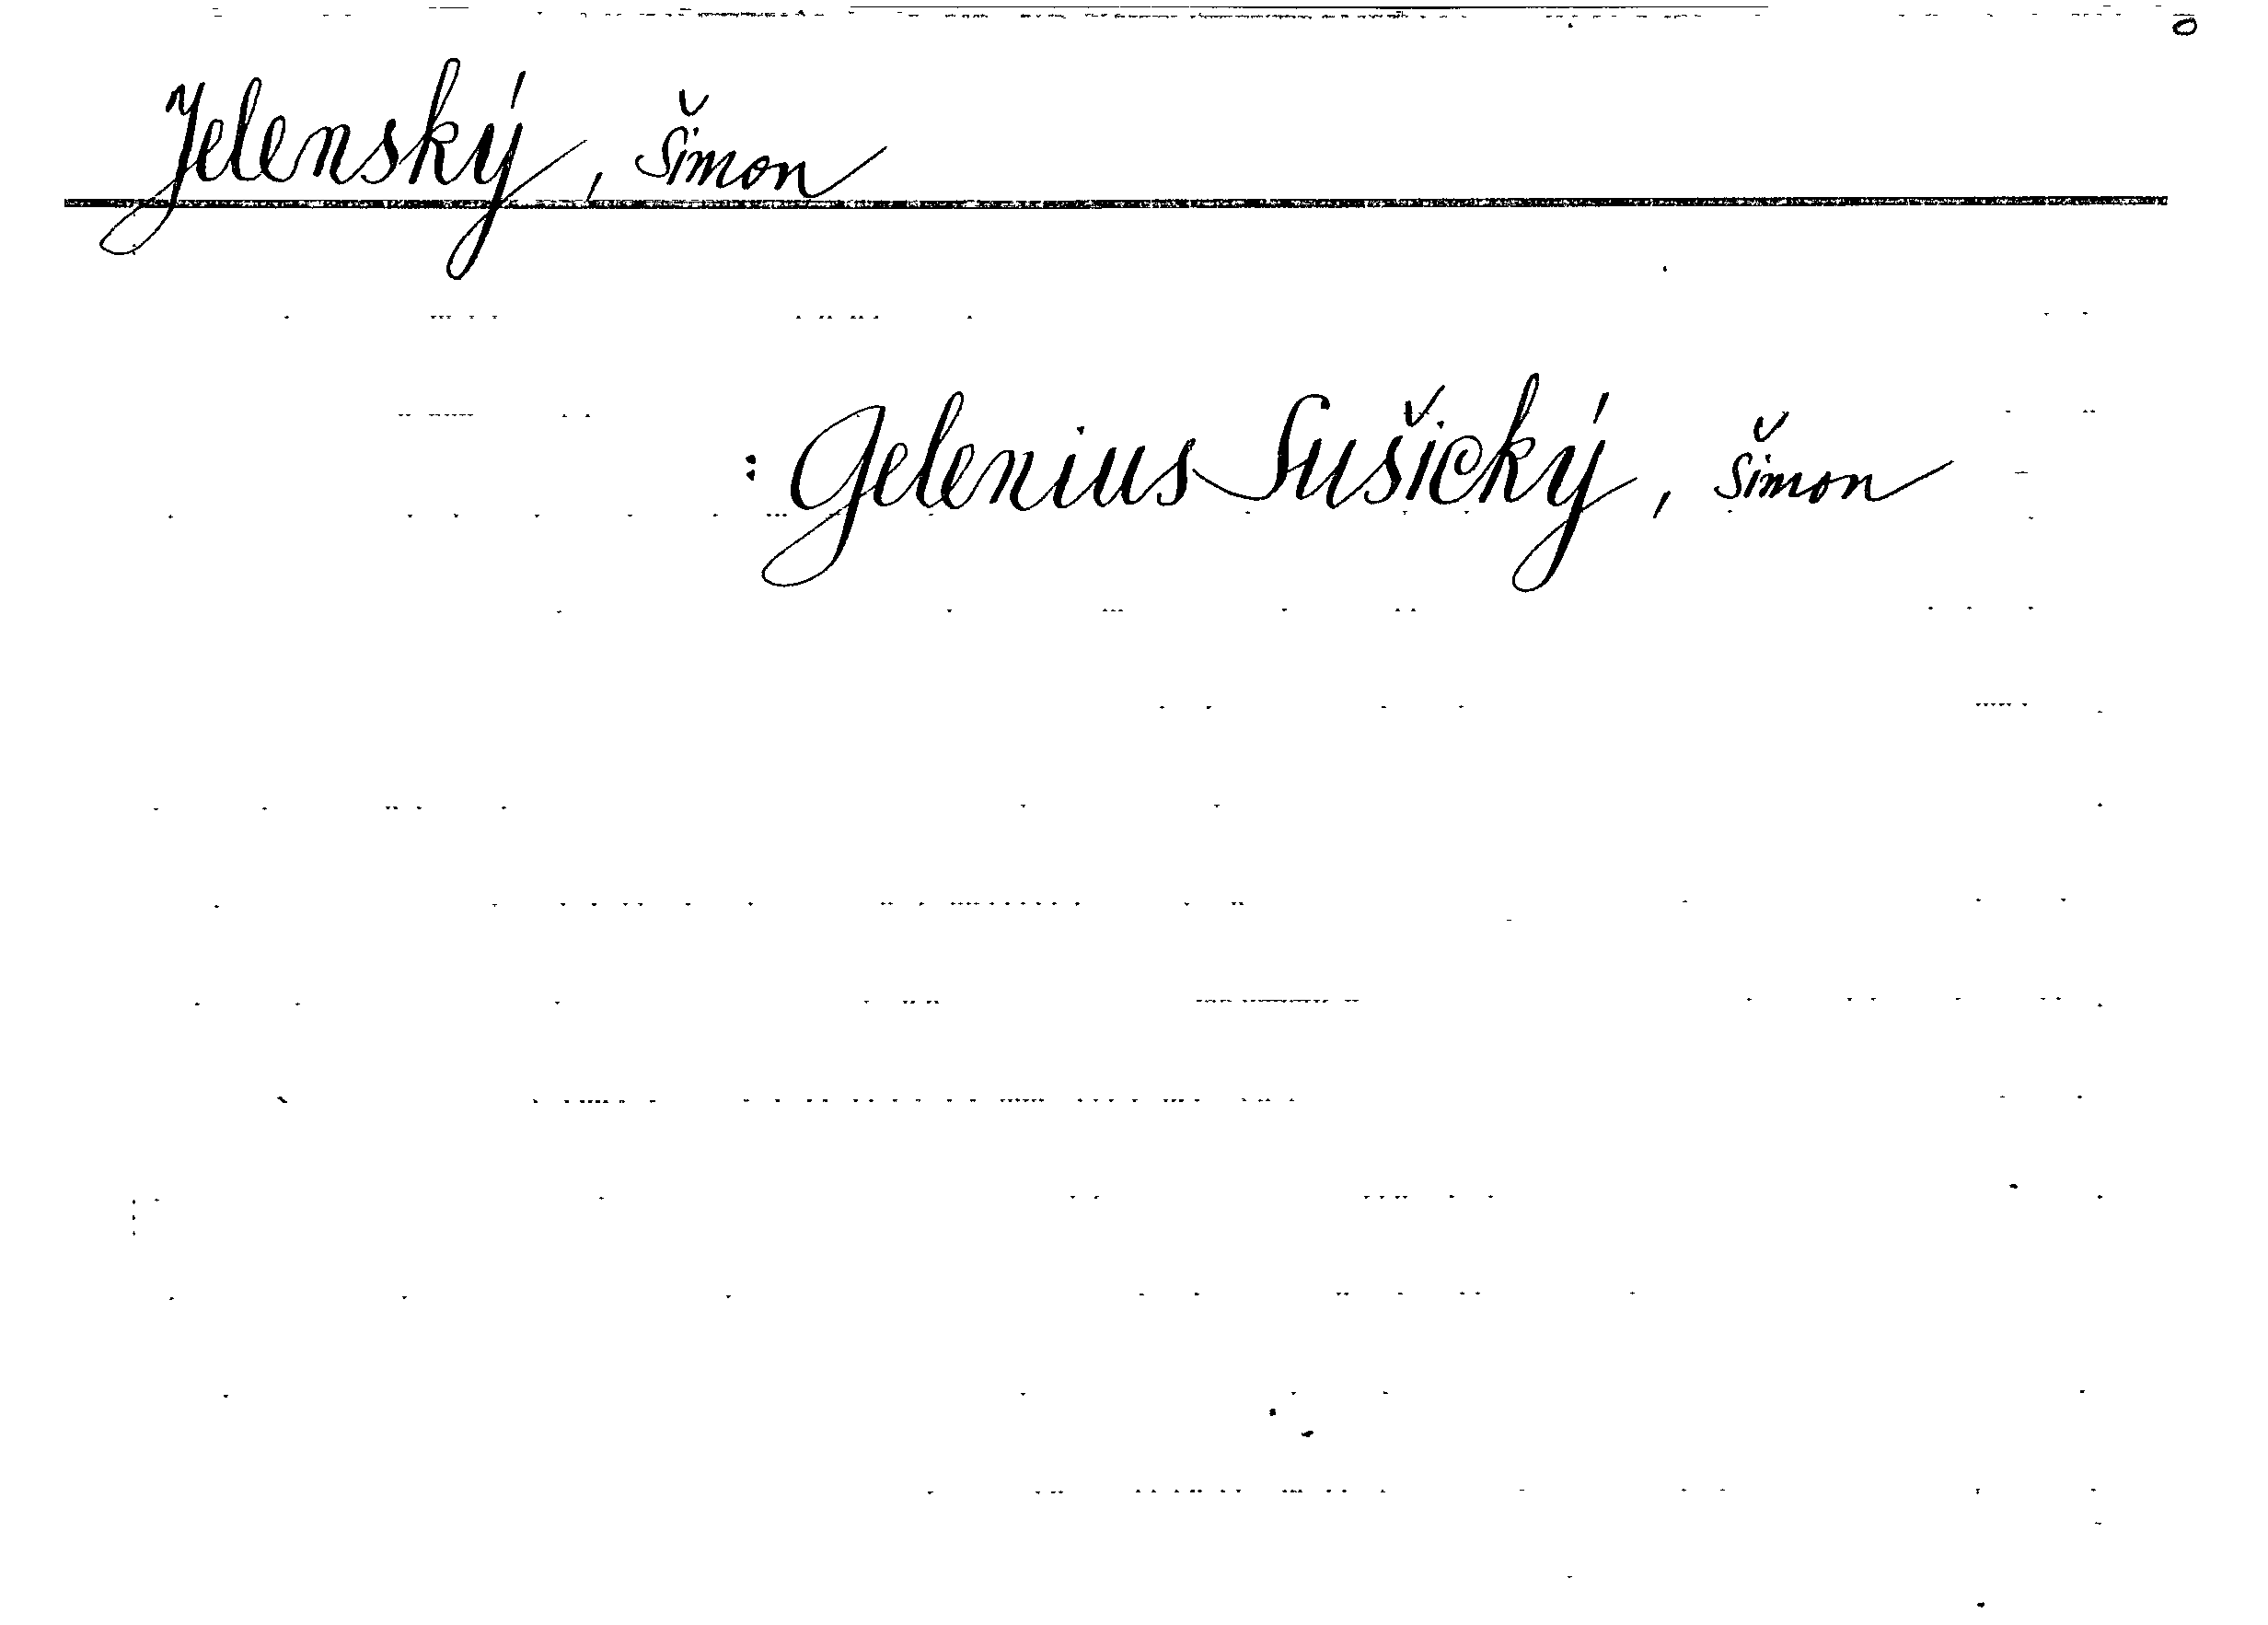 Jelenský, Šimon
: Gelenius Sušický, Šimon